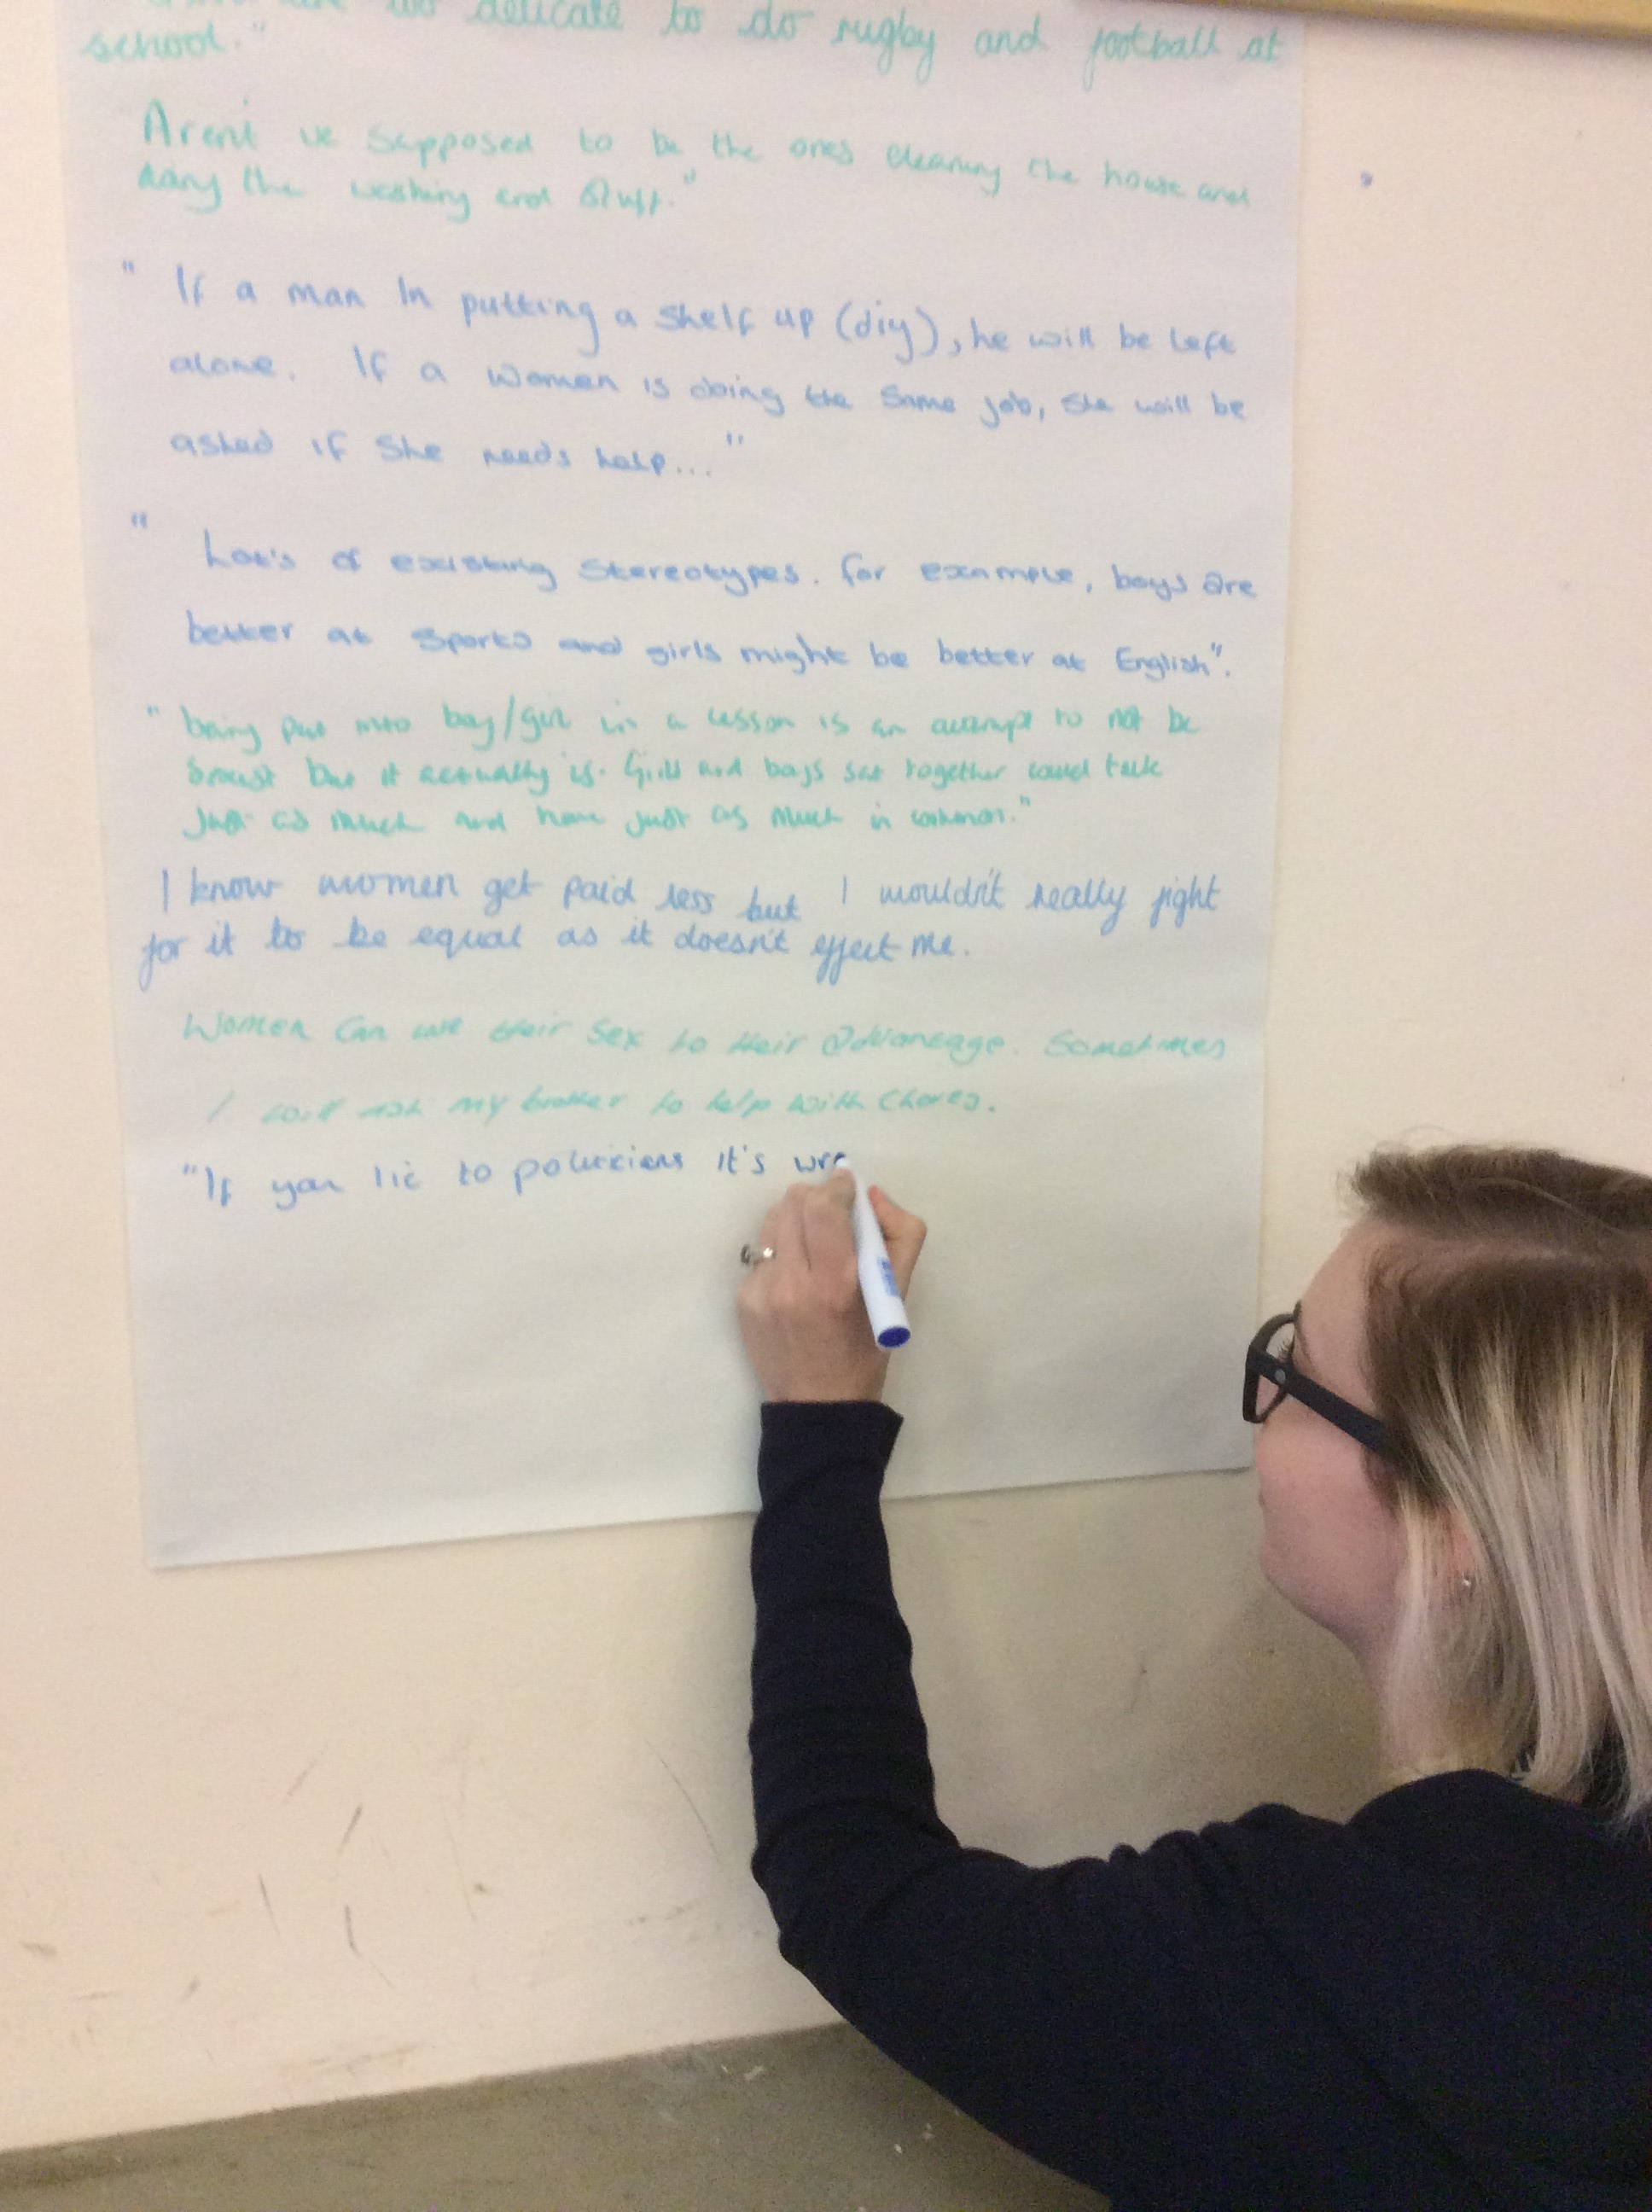 delicate to do rugby and football at
school."
Aren't we supposed to be the ones cleaning the house and
doing the washing and stuff."
" If a man in putting a shelf up (diy), he will be left
alone. If a women is doing the same job, she will be
asked if she needs help..."
" Lot's of existing stereotypes. For example, boys are
better at sports and girls might be better at English".
" being put into boy/girl in a lesson is an attempt to not be
but it actually is. Girls and boys sat together could talk
just as much and have just as much in common."
I know women get paid less but I wouldn't really fight
for it to be equal as it doesn't effect me.
Women can use their sex to their advantage. Sometimes
I will ask my brother to help with chores.
"If you lie to politicians it's wro